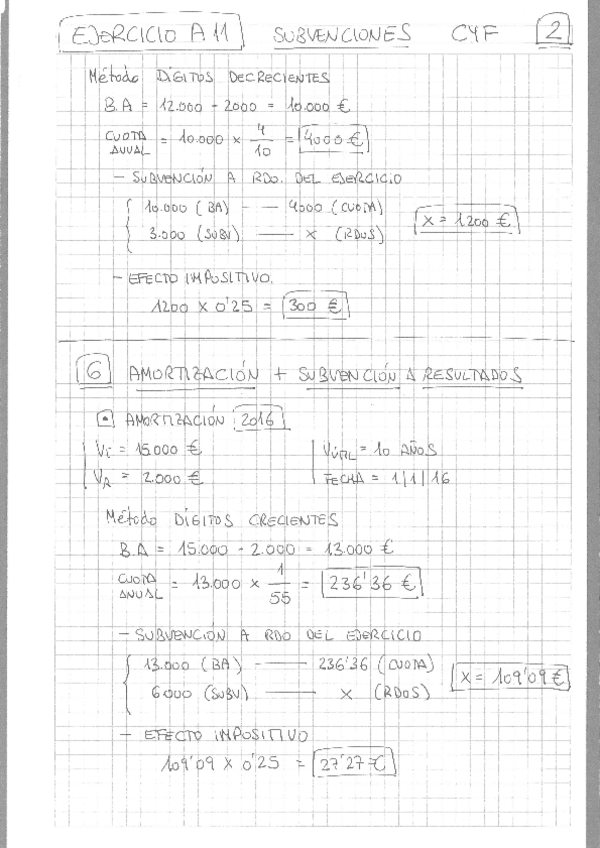 EJERCICIO A11 SUBVENCIONES CYF 2
Método DÍGITOS DECRECIENTES
B.A = 12.000 - 2000 = 10.000 €
CUOTA ANUAL = 10.000 x 4/10 = 4000 €
- SUBVENCIÓN A RDO. DEL EJERCICIO
10.000 (BA) — — 4000 (CUOTA)
3.000 (SUBV) —— x (RDOS) x = 1200 €
- EFECTO IMPOSITIVO.
1200 x 0'25 = 300 €
6 AMORTIZACIÓN + SUBVENCIÓN A RESULTADOS
• AMORTIZACIÓN 2016
Vi = 15.000 € VÚTIL = 10 AÑOS
VR = 2.000 € FECHA = 1/1/16
Método DÍGITOS CRECIENTES
B.A = 15.000 - 2.000 = 13.000 €
CUOTA ANUAL = 13.000 x 1/55 = 236'36 €
- SUBVENCIÓN A RDO DEL EJERCICIO
13.000 (BA) —— 236'36 (CUOTA)
6000 (SUBV) —— x (RDOS) x = 109'09 €
- EFECTO IMPOSITIVO
109'09 x 0'25 = 27'27 €